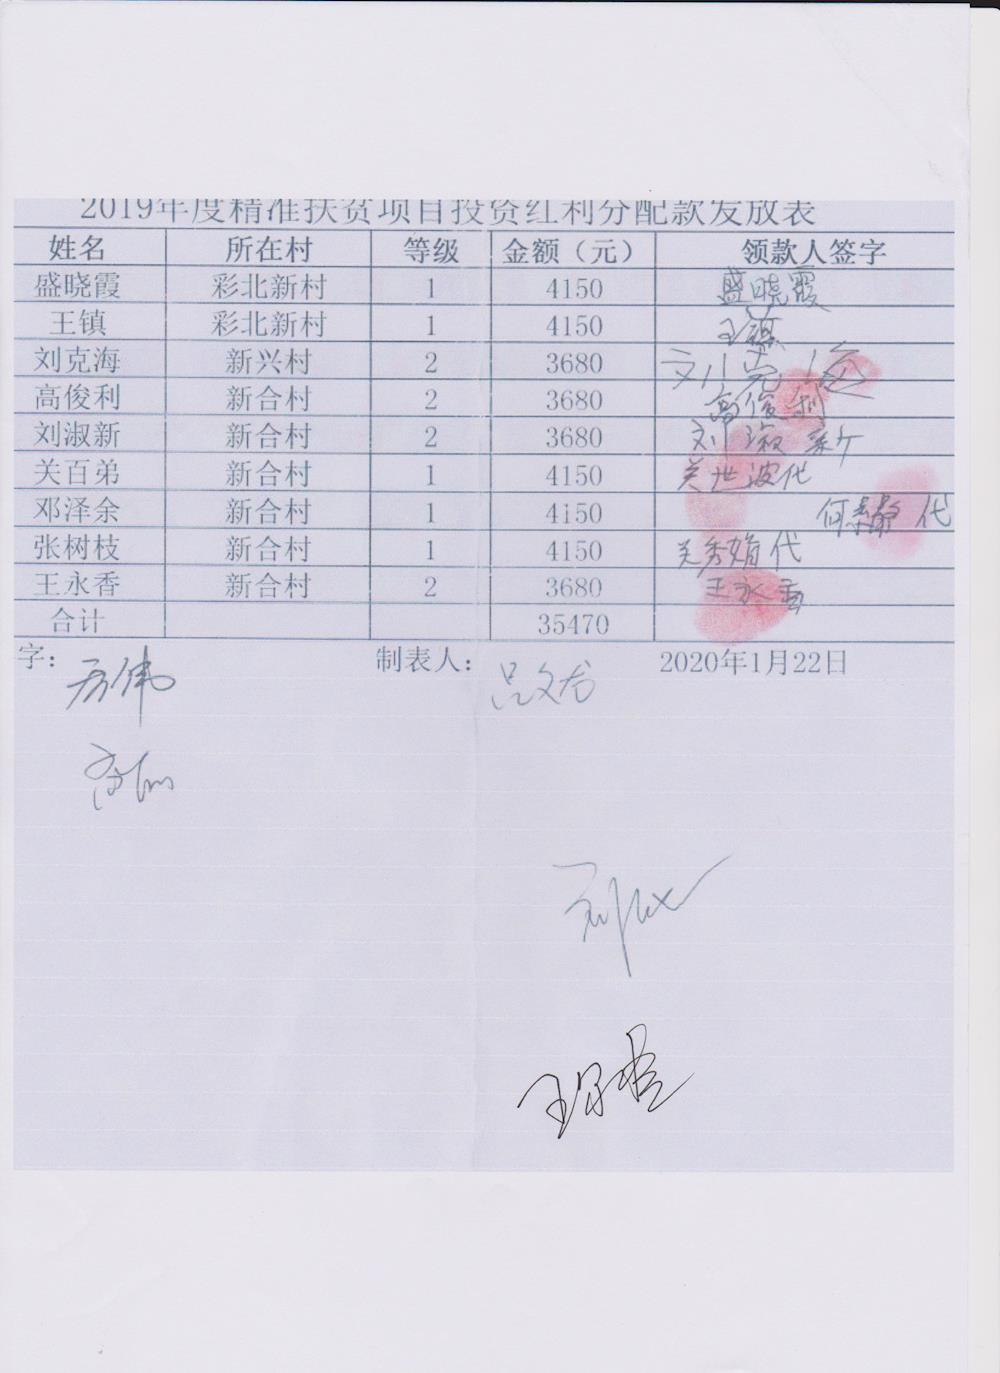 2019年度精准扶贫项目投资红利分配款发放表
姓名 所在村 等级 金额（元） 领款人签字
盛晓霞 彩北新村 1 4150 盛晓霞
王镇 彩北新村 1 4150 王镇
刘克海 新兴村 2 3680 刘克海
高俊利 新合村 2 3680 高俊利
刘淑新 新合村 2 3680 刘淑新
关百弟 新合村 1 4150 关世波代
邓泽余 新合村 1 4150 何素馨代
张树枝 新合村 1 4150 关秀娟代
王永香 新合村 2 3680 王永香
合计 35470
字： 制表人：吕文龙 2020年1月22日